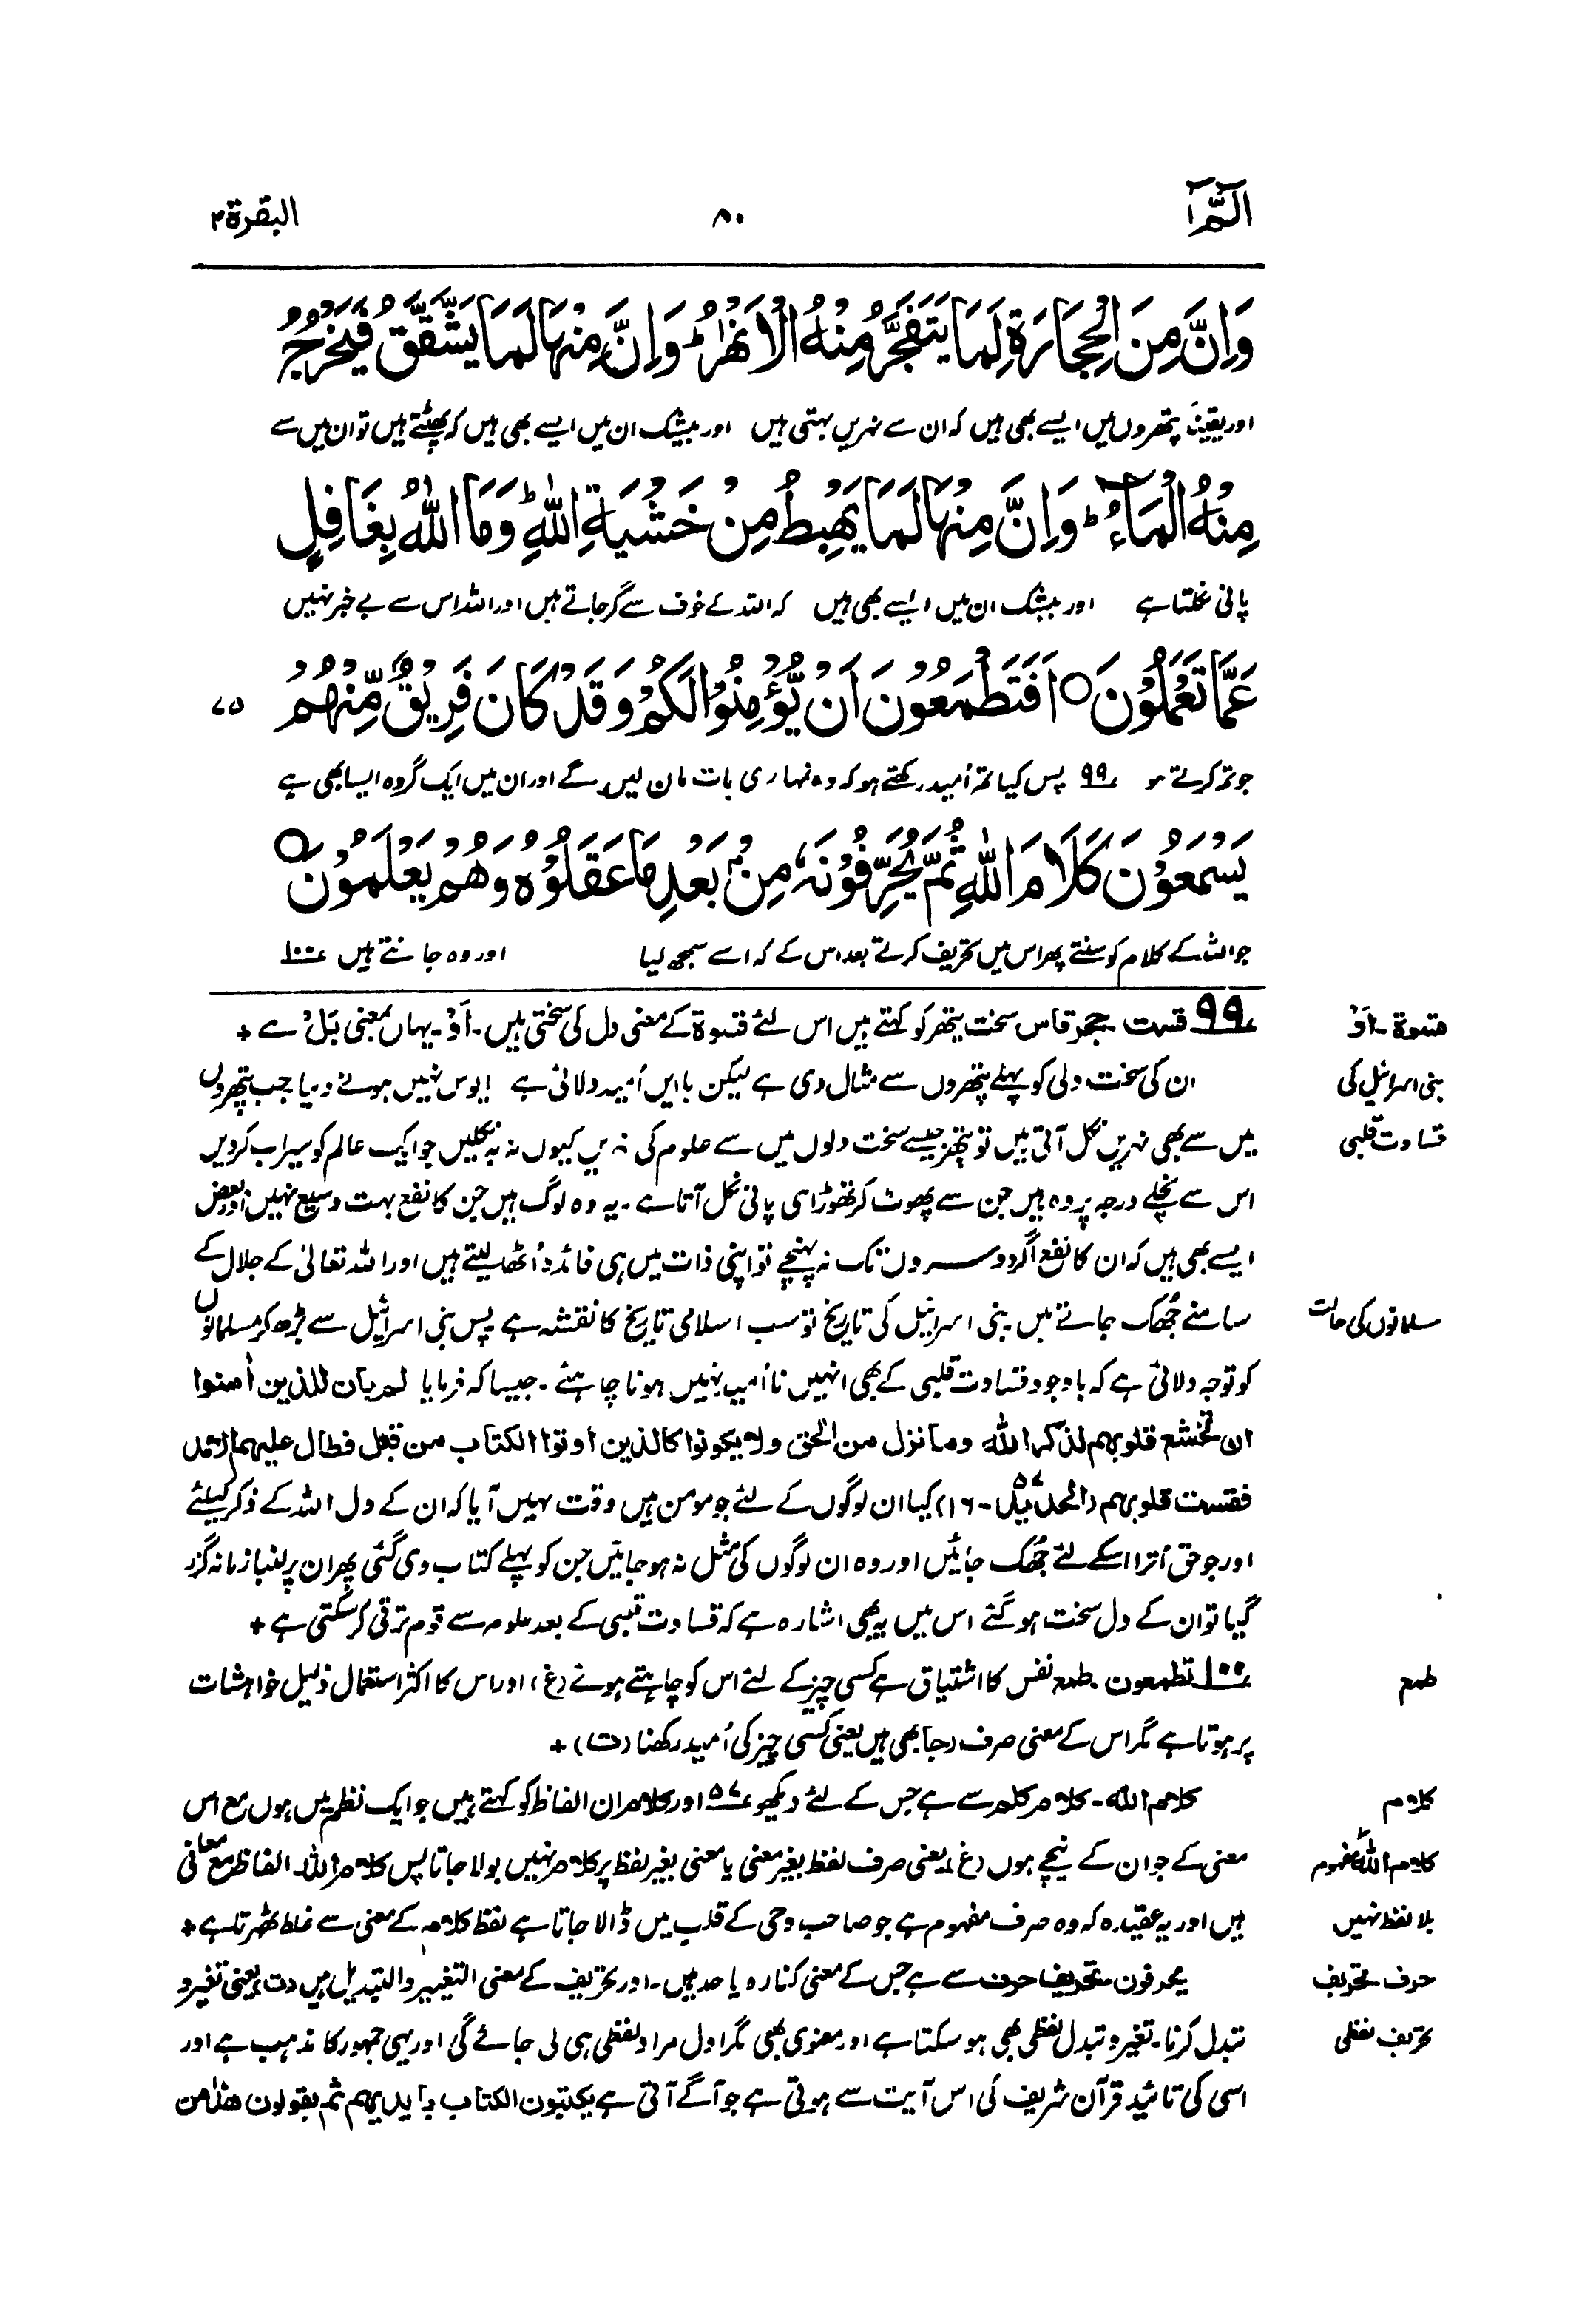 الٓمّٓ ۱
۸۰
البقرۃ ۲
وَاِنَّ مِنَ الْحِجَارَةِ لَمَا يَتَفَجَّرُ مِنْهُ الْاَنْهٰرُ ؕ وَاِنَّ مِنْهَا لَمَا يَشَّقَّقُ فَيَخْرُجُ
اور یقیناً پتھروں میں ایسے بھی ہیں کہ ان سے نہریں بہتی ہیں اور بیشک ان میں ایسے بھی ہیں کہ پھٹتے ہیں تو ان میں سے
مِنْهُ الْمَآءُ ؕ وَاِنَّ مِنْهَا لَمَا يَهْبِطُ مِنْ خَشْيَةِ اللّٰهِ ؕ وَمَا اللّٰهُ بِغَافِلٍ
پانی نکلتا ہے اور بیشک ان میں ایسے بھی ہیں کہ اللہ کے خوف سے گر جاتے ہیں اور اللہ اس سے بے خبر نہیں
عَمَّا تَعْمَلُوْنَ ○ اَفَتَطْمَعُوْنَ اَنْ يُّؤْمِنُوْا لَكُمْ وَقَدْ كَانَ فَرِيْقٌ مِّنْهُمْ ۷۵
جو تم کرتے ہو ۹۹ پس کیا تم اُمید رکھتے ہو کہ وہ تمہاری بات مان لیں گے اور ان میں ایک گروہ ایسا بھی ہے
يَسْمَعُوْنَ كَلَامَ اللّٰهِ ثُمَّ يُحَرِّفُوْنَهٗ مِنْۢ بَعْدِ مَا عَقَلُوْهُ وَهُمْ يَعْلَمُوْنَ ○
جو اللہ کے کلام کو سنتے پھر اس میں تحریف کرتے بعد اس کے کہ اسے سمجھ لیا اور وہ جانتے ہیں ۱۰۰
قسوۃ - اَوْ
۹۹ قست ۔ حجر قاس سخت پتھر کو کہتے ہیں اس لئے قسوۃ کے معنی دل کی سختی ہیں ۔ اَوْ ۔ یہاں بمعنی بَلْ ہے +
بنی اسرائیل کی
ان کی سخت دلی کو پہلے پتھروں سے مثال دی ہے لیکن باایں اُمید دلائی ہے مایوس نہیں ہونے دیا جب پتھروں
قساوت قلبی
میں سے بھی نہریں نکل آتی ہیں تو پتھر جیسے سخت دلوں میں سے علوم کی نہریں کیوں نہ بہ نکلیں جو ایک عالم کو سیراب کردیں
اس سے نچلے درجہ پر وہ ہیں جن سے پھوٹ کر تھوڑا سی پانی نکل آتا ہے ۔ یہ وہ لوگ ہیں جن کا نفع بہت وسیع نہیں اور بعض
ایسے بھی ہیں کہ ان کا نفع اگر دوسروں تک نہ پہنچے تو اپنی ذات میں ہی فائدہ اُٹھا لیتے ہیں اور اللہ تعالیٰ کے جلال کے
مسلمانوں کی حالت
سامنے جُھک جاتے ہیں بنی اسرائیل کی تاریخ تو سب اسلامی تاریخ کا نقشہ ہے پس بنی اسرائیل سے بڑھ کر مسلمانوں
کو توجہ دلائی ہے کہ باوجود قساوت قلبی کے بھی انہیں نا اُمید نہیں ہونا چاہئے ۔ جیسا کہ فرمایا الم یان للذین اٰمنوا
ان تخشع قلوبہم لذکر اللہ وما نزل من الحق ولا یکونوا کالذین اوتوا الکتاب من قبل فطال علیہم الامد
فقست قلوبہم (الحدید ۵۷ - ۱۶) کیا ان لوگوں کے لئے جو مومن ہیں وقت نہیں آیا کہ ان کے دل اللہ کے ذکر کیلئے
اور جو حق اُترا اسکے لئے جُھک جائیں اور وہ ان لوگوں کی مثل نہ ہو جائیں جن کو پہلے کتاب دی گئی پھر ان پر لمبا زمانہ گزر
گیا تو ان کے دل سخت ہو گئے اس میں یہ بھی اشارہ ہے کہ قساوت قلبی کے بعد علوم سے قوم ترقی کر سکتی ہے +
طمع
۱۰۰ تطمعون ۔ طمع نفس کا اشتیاق ہے کسی چیز کے لئے اس کو چاہتے ہوئے (غ) اور اس کا اکثر استعمال ذلیل خواہشات
پر ہوتا ہے مگر اس کے معنی صرف رجا بھی ہیں یعنی کسی چیز کی اُمید رکھنا (ت) +
کلام
کلام اللہ ۔ کلام کلم سے ہے جس کے لئے دیکھو ۵۷ اور کلام ان الفاظ کو کہتے ہیں جو ایک نظم میں ہوں مع اس
کلام اللہ مفہوم
معنی کے جو ان کے نیچے ہوں (غ) یعنی صرف لفظ بغیر معنی یا معنی بغیر لفظ پر کلام نہیں بولا جاتا پس کلام اللہ الفاظ مع معانی
بلا لفظ نہیں
ہیں اور یہ عقیدہ کہ وہ صرف مفہوم ہے جو صاحب وحی کے قلب میں ڈالا جاتا ہے لفظ کلام کے معنی سے غلط ٹھہرتا ہے +
حرف - تحریف
یحرفون ۔ تحریف حرف سے ہے جس کے معنی کنارہ یا حد ہیں ۔ اور تحریف کے معنی التغییر والتبدیل ہیں (ت) یعنی تغیر و
تحریف لفظی
تبدل کرنا ۔ تغیر و تبدل لفظی بھی ہو سکتا ہے اور معنوی بھی مگر اول مراد لفظی ہی لی جائے گی اور یہی جمہور کا مذہب ہے اور
اسی کی تائید قرآن شریف کی اس آیت سے ہوتی ہے جو آگے آتی ہے یکتبون الکتاب بایدیہم ثم یقولون ھذا من